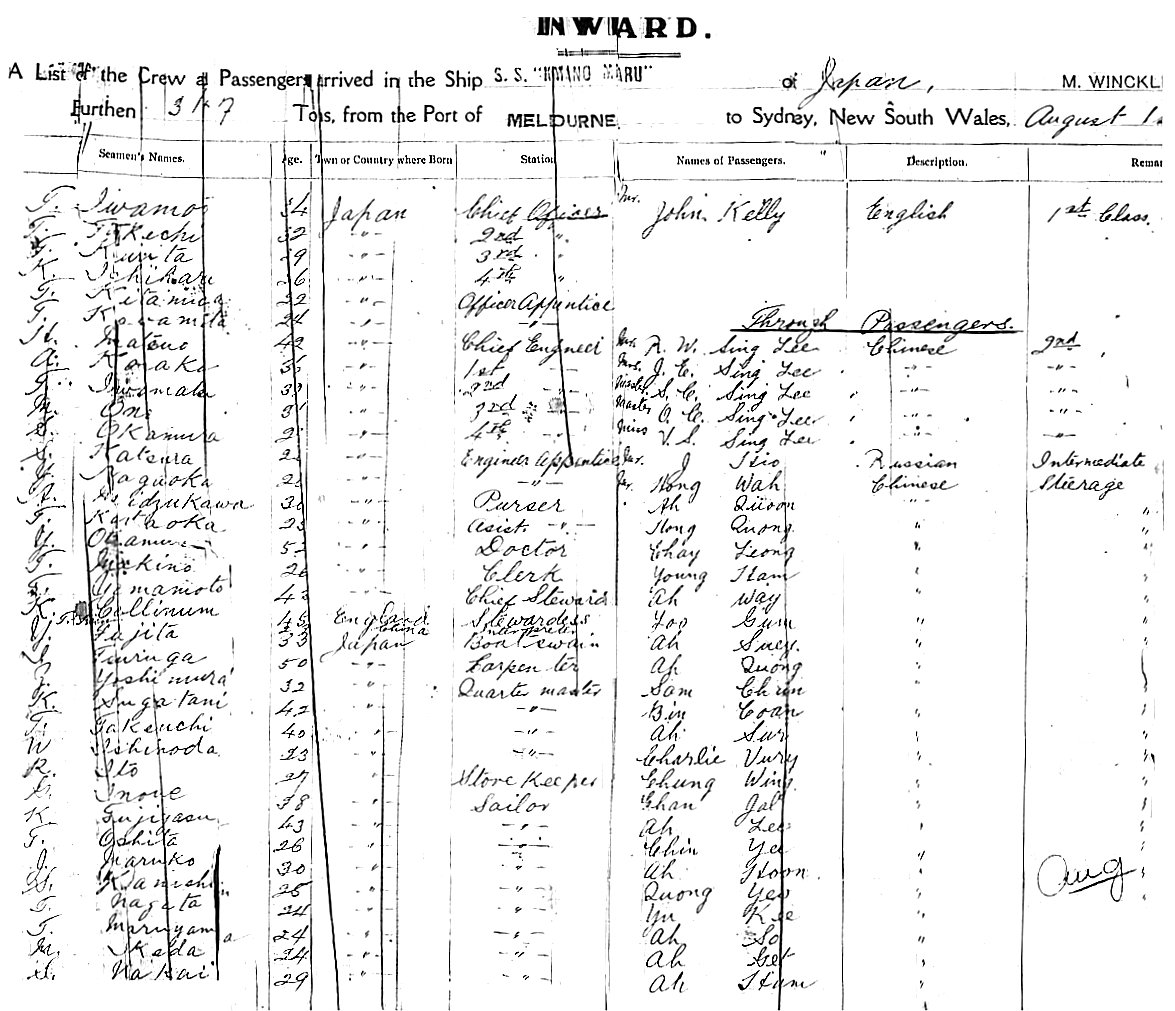 INWARD.
A List of the Crew & Passengers arrived in the Ship S. S. "KMANO MARU" of Japan, M. WINCKL
Burthen 3147 Tons, from the Port of MELBOURNE to Sydney, New South Wales, August 1
Seamen's Names. Age. Town or Country where Born Station Names of Passengers. Description. Remar
T. Iwamoto 34 Japan Chief Officer Mr. John Kelly English 1st Class.
T. Takechi 32 -"- 2nd "
Kurita 29 -"- 3rd "
K. Ishihara 26 -"- 4th "
T. Kitamura 22 -"- Officer Apprentice
T. Kawamita 24 -"- -"- Through Passengers.
H. Matsuo 42 -"- Chief Engineer Mr. R. W. Sing Lee Chinese 2nd
A. Kosaka 35 -"- 1st -"- Mrs. J. E. Sing Lee -"- -"-
T. Iwamata 39 -"- 2nd -"- Master S. C. Sing Lee -"- -"-
M. Ono 31 -"- 3rd -"- Master O. C. Sing Lee -"- -"-
S. Okamura -"- 4th -"- Miss V. S. Sing Lee -"- -"-
S. Katsura -"- Engineer Apprentice Mr. J Russian Intermediate
Y. Naguoka -"- -"- Mr. Hong Wah Chinese Steerage
Kidzukawa 30 -"- Purser Ah Quoon " "
T. Kataoka 25 -"- Assist. -"- Hong Quong " "
Y. Okamura 52 -"- Doctor Chay Leong " "
T. Yukino 26 -"- Clerk Young Ham " "
Yamamoto 43 -"- Chief Steward Ah Way " "
K. Collinum 45 England Stewardess Loo Gum " "
China Interpreter
Y. Fujita 33 Japan Boatswain Ah Suey " "
Tsuruga 50 -"- Carpenter Ah Quong " "
Yoshimura 32 -"- Quarter master Sam Chun " "
K. Sugatani 42 -"- -"- Bin Coan " "
T. Takeuchi 40 -"- -"- Ah Sur " "
W. Ishinoda 23 -"- -"- Charlie Vury " "
K. Ito 27 -"- Store Keeper Chung Wing " "
Inoue 38 -"- Sailor Chan Jal " "
K. Fujiyasu 43 -"- -"- Ah Lee " "
T. Oshita 26 -"- -"- Chin Yee " "
J. Maruko 30 -"- -"- Ah Hoon " Aug
S. Kanichi 25 -"- -"- Quong Yee " "
T. Nagata 24 -"- -"- Yu Kee "
T. Maruyama 24 -"- -"- Ah So "
M. Ikeda 24 -"- -"- Ah Get "
Nakai 29 -"- -"- Ah Hum "